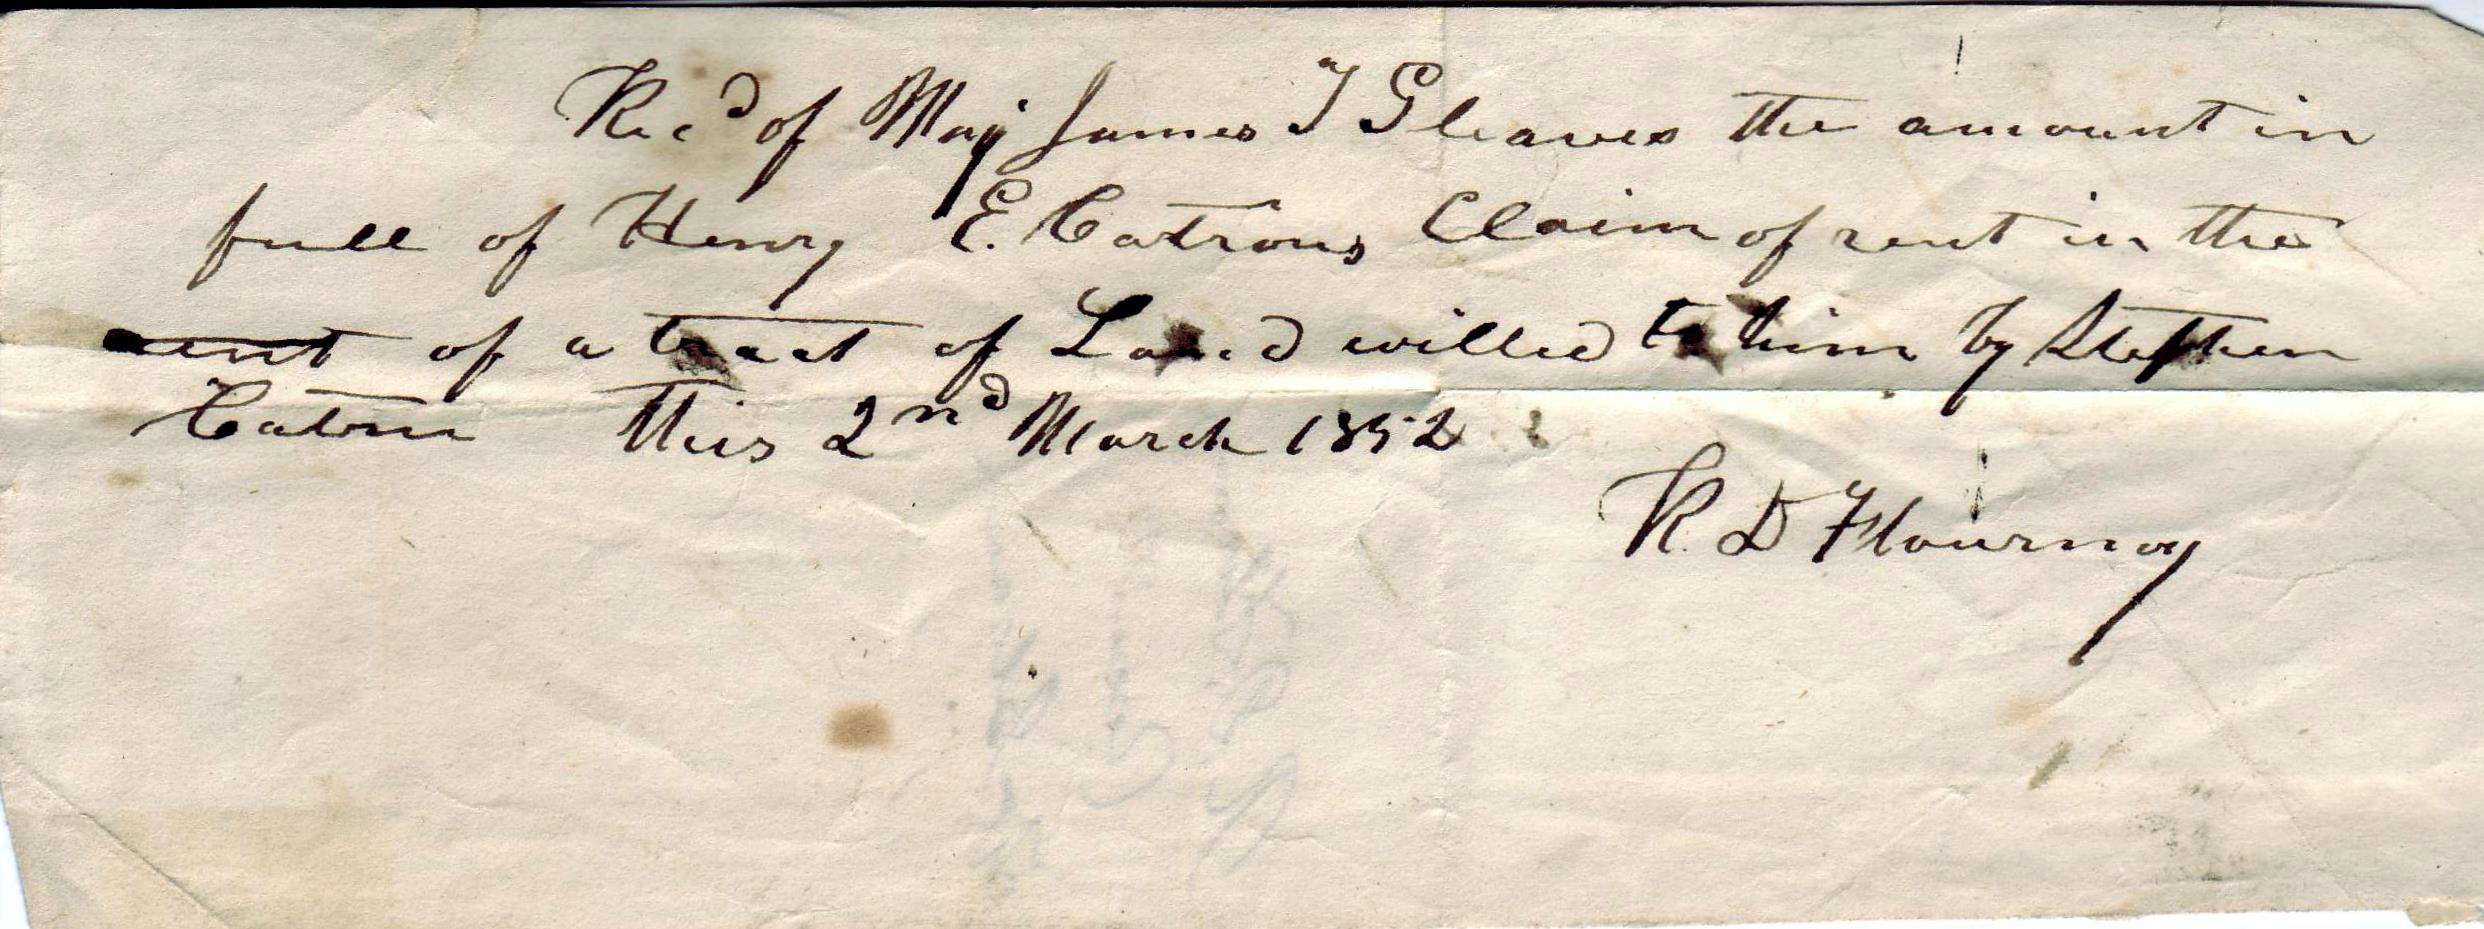 Rec^d of Maj James T Gleaves the amount in
full of Henry E. Catrons Claim of rent in the
rent of a tract of Land willed to him by Stephen
Catron this 2^nd March 1852
R. D Flournoy